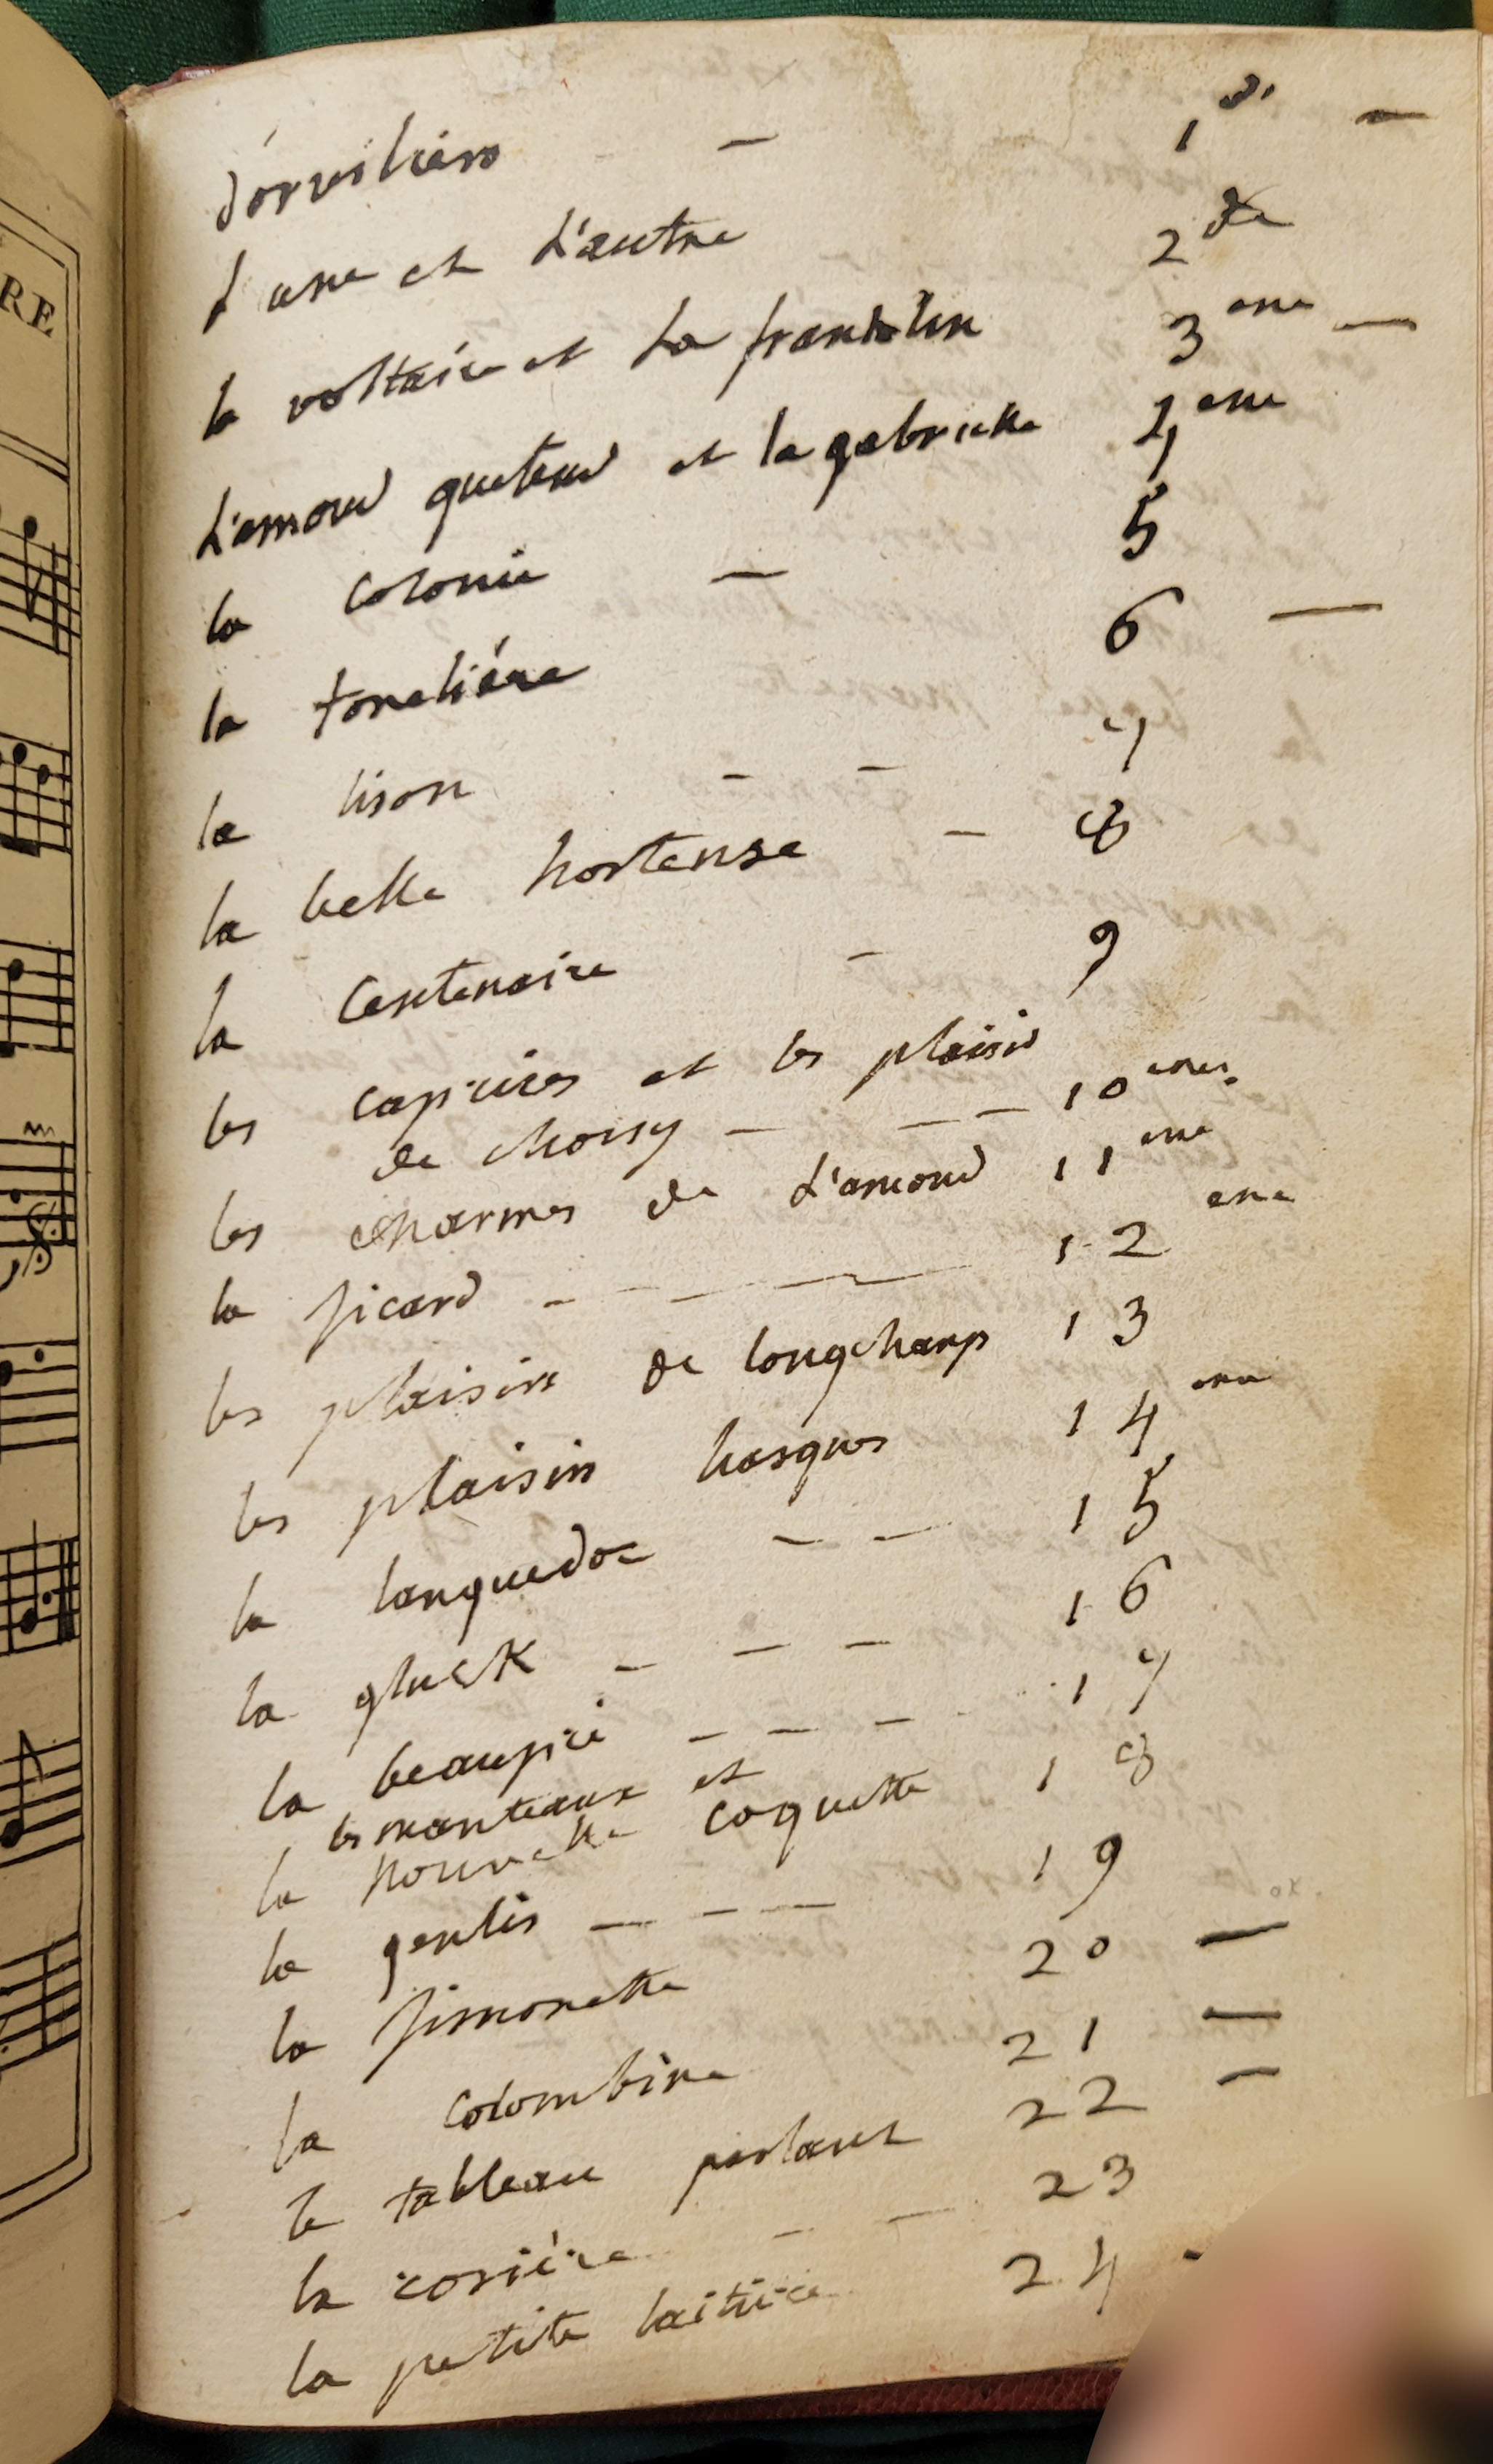 RE
d'orviliers — 1er —
l'une et L'autre 2de
la voltaire et La franklin 3eme —
L'amour queteur et la gabrielle 4eme
la colonie — 5
la toneliére 6 —
la lison — — 7
la belle hortense — 8
la centenaire — 9
les caprices et les plaisir
de choisy — — 10eme
les charmes de L'amour 11eme
la picard — — — 12 eme
les plaisirs de longchamp 13
les plaisirs basques 14eme
la languedoc — — 15
la gluck — — — 16
la beaupré — — — 17
les manteaux et
la nouvelle coquette 18
la genlis — — — 19
la simonette 20 —
la colombine 21 —
le tableau parlant 22 —
la rosiére — — 23
la petite laitière 24 -